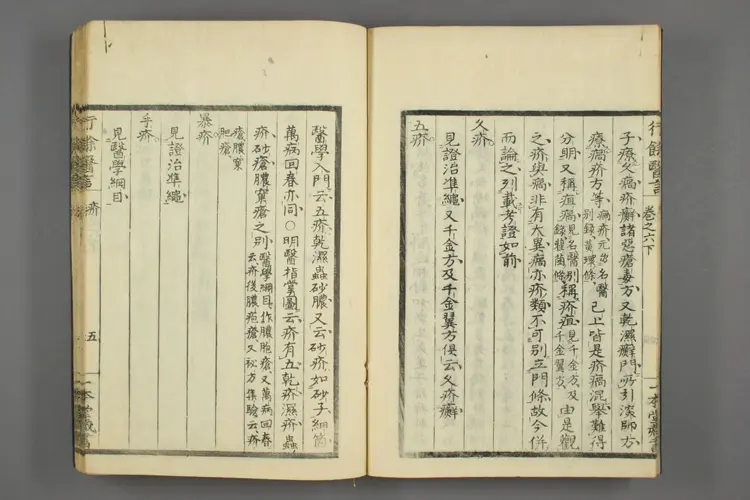 行餘醫言
卷之六下
子療久瘑疥癬諸惡瘡毒方又乾濕癬門所引深師方
療瘑疥方等瘑疥元出名醫別錄黃環條已上皆是疥瘑混舉難得
分明又稱疽瘑見名醫別錄雚菌條稱疥疽見千金方及千金翼方由是觀
之疥與瘑非有大異瘑亦疥類不可別立門條故今併
而論之列載考證如前
久疥
見證治準繩又千金方及千金翼方俱云久疥癬
五疥
一本堂藏書
醫學入門云五疥乾濕蟲砂膿又云砂疥如砂子細
萬病回春亦同○明醫指掌圖云疥有五乾疥濕疥蟲
疥砂瘡膿窠瘡之別醫學綱目作膿胞瘡又萬病回春云疥後膿疱瘡又秘方集驗云疥
瘡膿窠
肥瘡
暴疥
見證治準繩
手疥
見醫學綱目
行餘醫言
疥
五
一本堂藏書